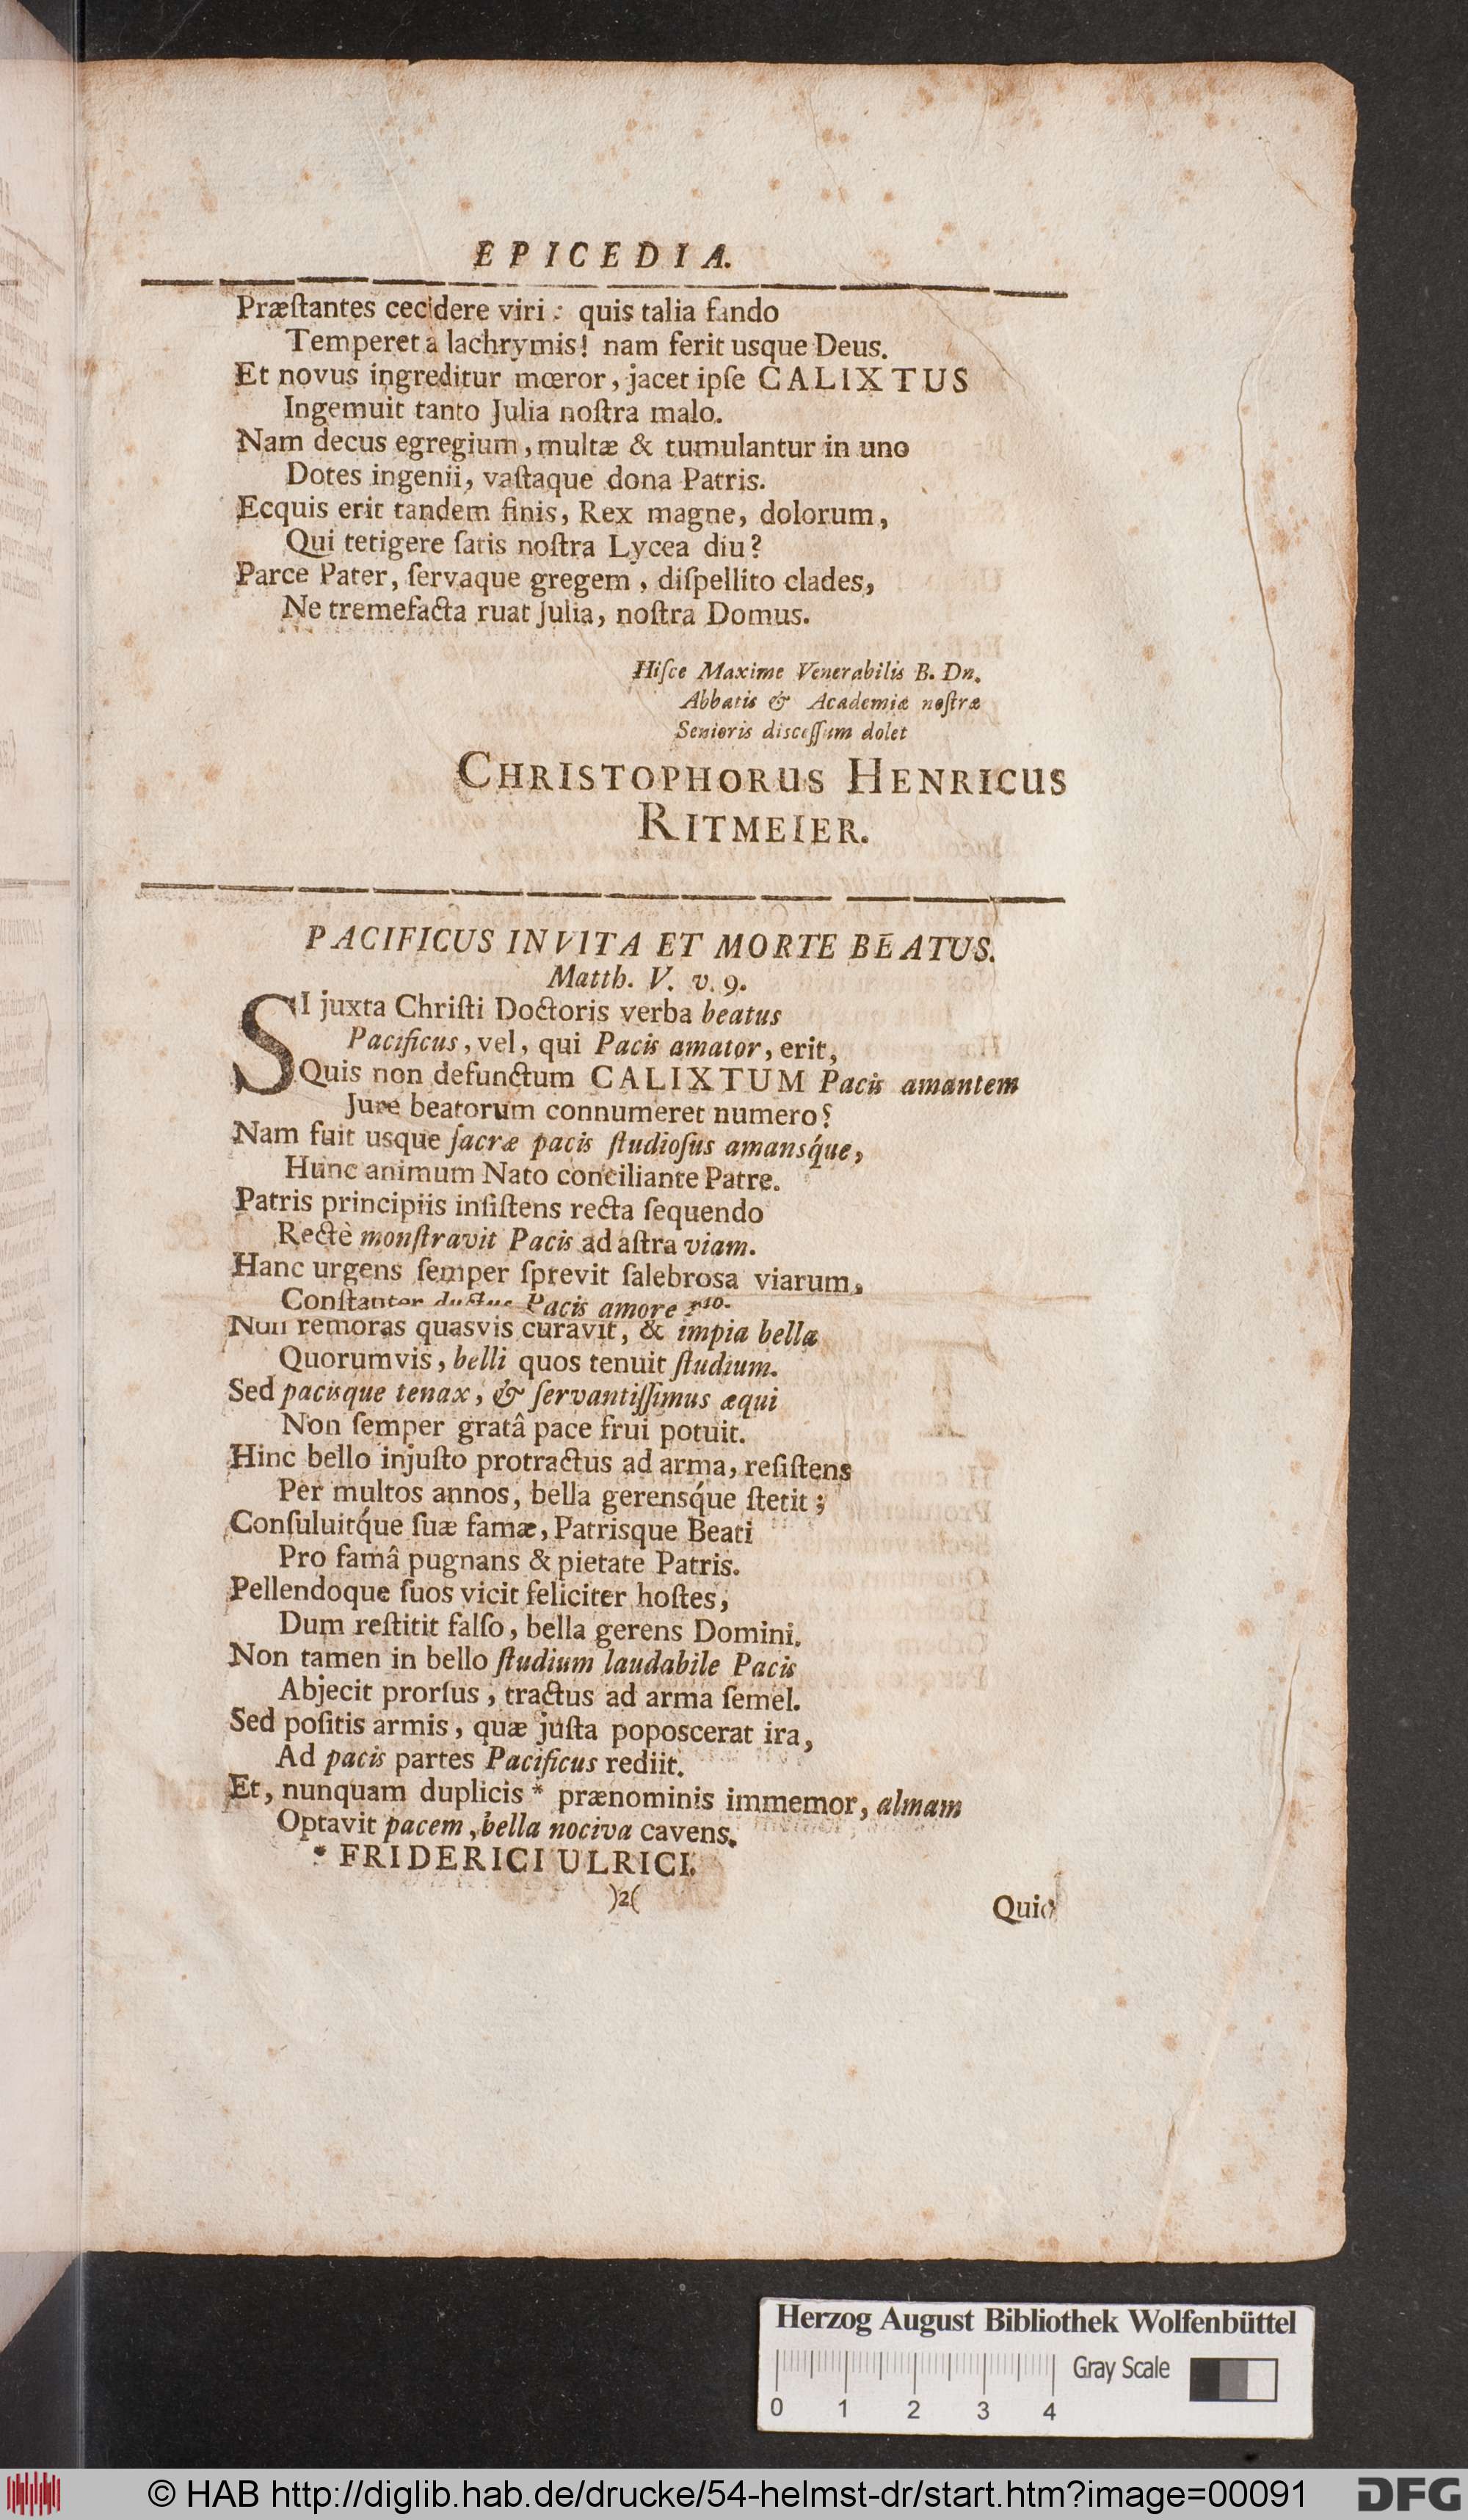 EPICEDIA.
Præſtantes cecidere viri: quis talia fando
Temperet à lachrymis! nam ferit usque Deus.
Et novus ingreditur mœror, jacet ipſe CALIXTUS
Ingemuit tanto Julia noſtra malo.
Nam decus egregium, multæ & tumulantur in uno
Dotes ingenii, vaſtaque dona Patris.
Ecquis erit tandem finis, Rex magne, dolorum,
Qui tetigere ſatis noſtra Lycea diu?
Parce Pater, ſervaque gregem, diſpellito clades,
Ne tremefacta ruat Julia, noſtra Domus.
Hiſce Maxime Venerabilis B. Dn.
Abbatis & Academiæ noſtræ
Senioris disceſſum dolet
CHRISTOPHORUS HENRICUS
RITMEIER.
PACIFICUS IN VITA ET MORTE BEATUS.
Matth. V. v. 9.
SI juxta Chriſti Doctoris verba beatus
Pacificus, vel, qui Pacis amator, erit,
Quis non defunctum CALIXTUM Pacis amantem
Jure beatorum connumeret numero?
Nam fuit usque ſacræ pacis ſtudioſus amansq́ue,
Hunc animum Nato conciliante Patre.
Patris principiis inſiſtens recta ſequendo
Rectè monſtravit Pacis ad aſtra viam.
Hanc urgens ſemper ſprevit ſalebrosa viarum,
Conſtanter ductus Pacis amore
Non remoras quasvis curavit, & impia bella
Quorumvis, belli quos tenuit ſtudium.
Sed pacisque tenax, & ſervantiſſimus æqui
Non ſemper gratâ pace frui potuit.
Hinc bello injuſto protractus ad arma, reſiſtens
Per multos annos, bella gerensq́ue ſtetit;
Conſuluitq́ue ſuæ famæ, Patrisque Beati
Pro famâ pugnans & pietate Patris.
Pellendoque ſuos vicit feliciter hoſtes,
Dum reſtitit falſo, bella gerens Domini.
Non tamen in bello ſtudium laudabile Pacis
Abjecit prorſus, tractus ad arma ſemel.
Sed poſitis armis, quæ juſta poposcerat ira,
Ad pacis partes Pacificus rediit.
Et, nunquam duplicis * prænominis immemor, almam
Optavit pacem, bella nociva cavens.
* FRIDERICI ULRICI.
)2(
Quid
Herzog August Bibliothek Wolfenbüttel
Gray Scale
0 1 2 3 4
© HAB http://diglib.hab.de/drucke/54-helmst-dr/start.htm?image=00091
DFG